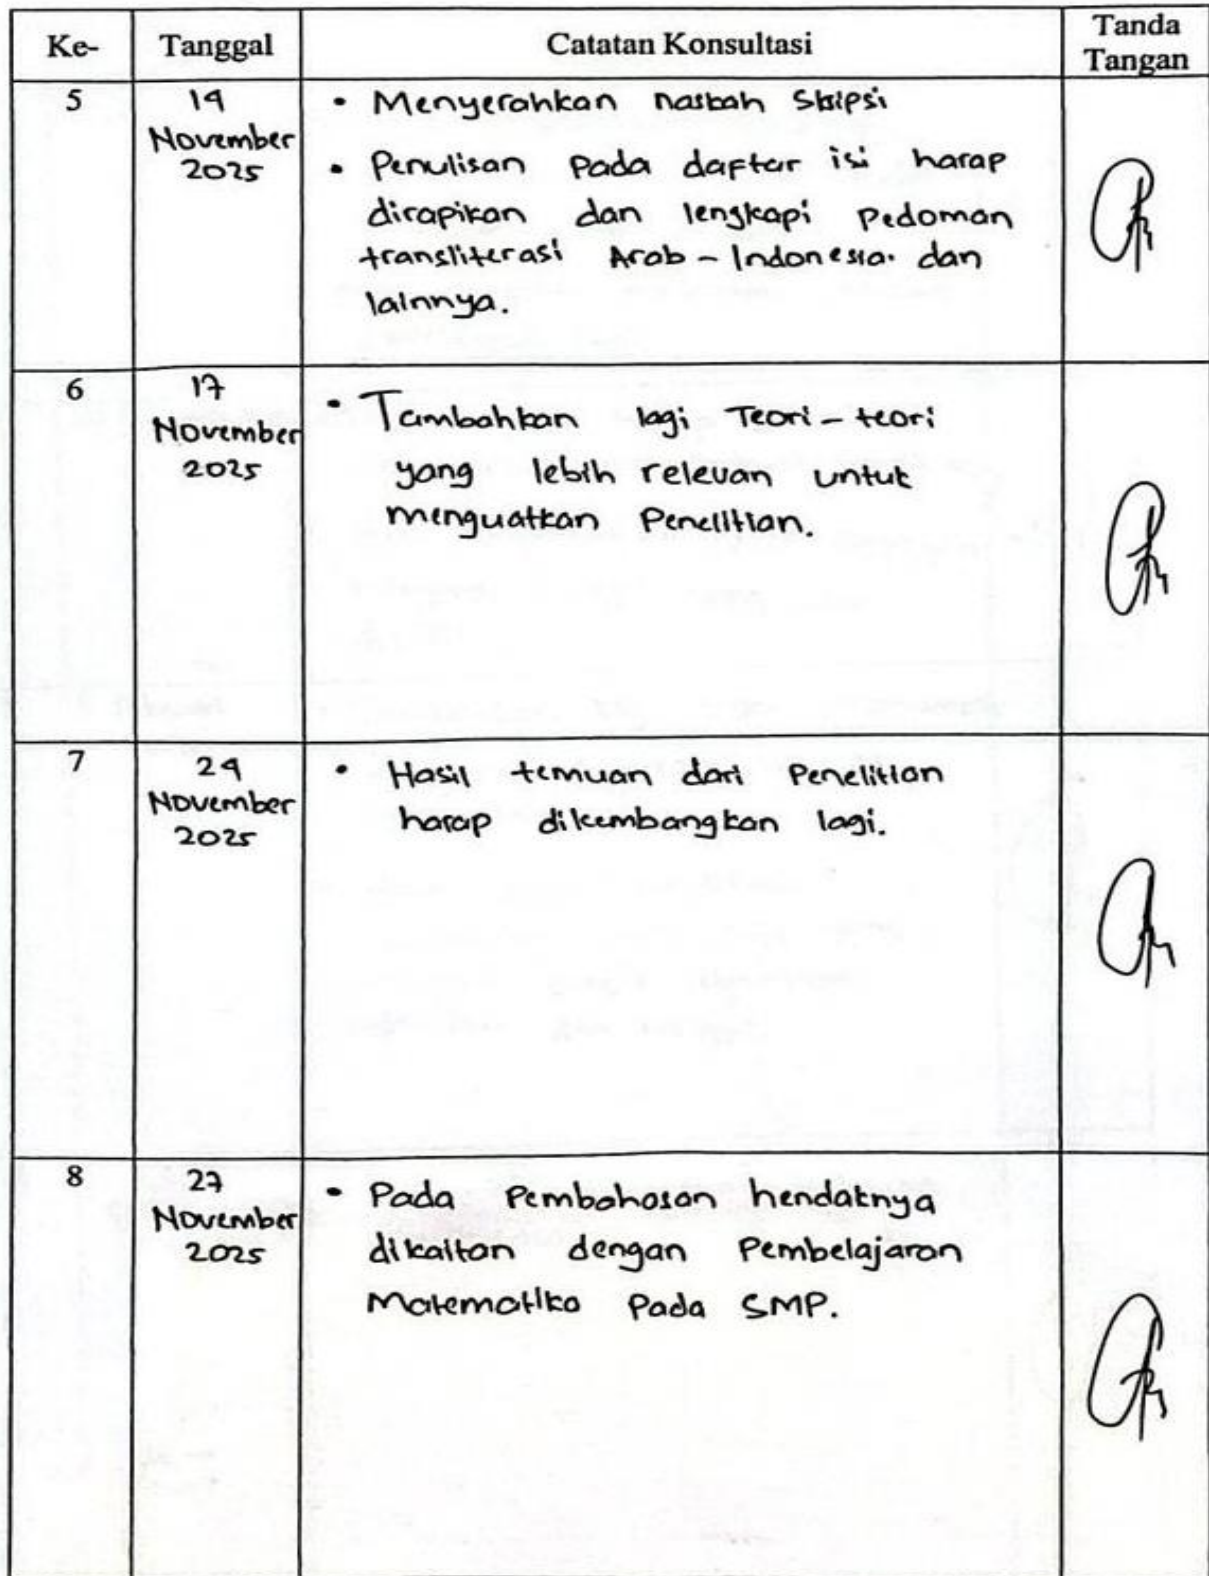 Ke- Tanggal Catatan Konsultasi Tanda Tangan
5 14 November 2025
• Menyerahkan naskah Skripsi
• Penulisan Pada daftar isi harap
dirapikan dan lengkapi Pedoman
transliterasi Arab - Indonesia. dan
lainnya.
6 17 November 2025
• Tambahkan lagi Teori - teori
yang lebih relevan untuk
menguatkan Penelitian.
7 24 November 2025
• Hasil temuan dari Penelitian
harap dikembangkan lagi.
8 27 November 2025
• Pada Pembahasan hendaknya
dikaitan dengan Pembelajaran
Matematika Pada SMP.